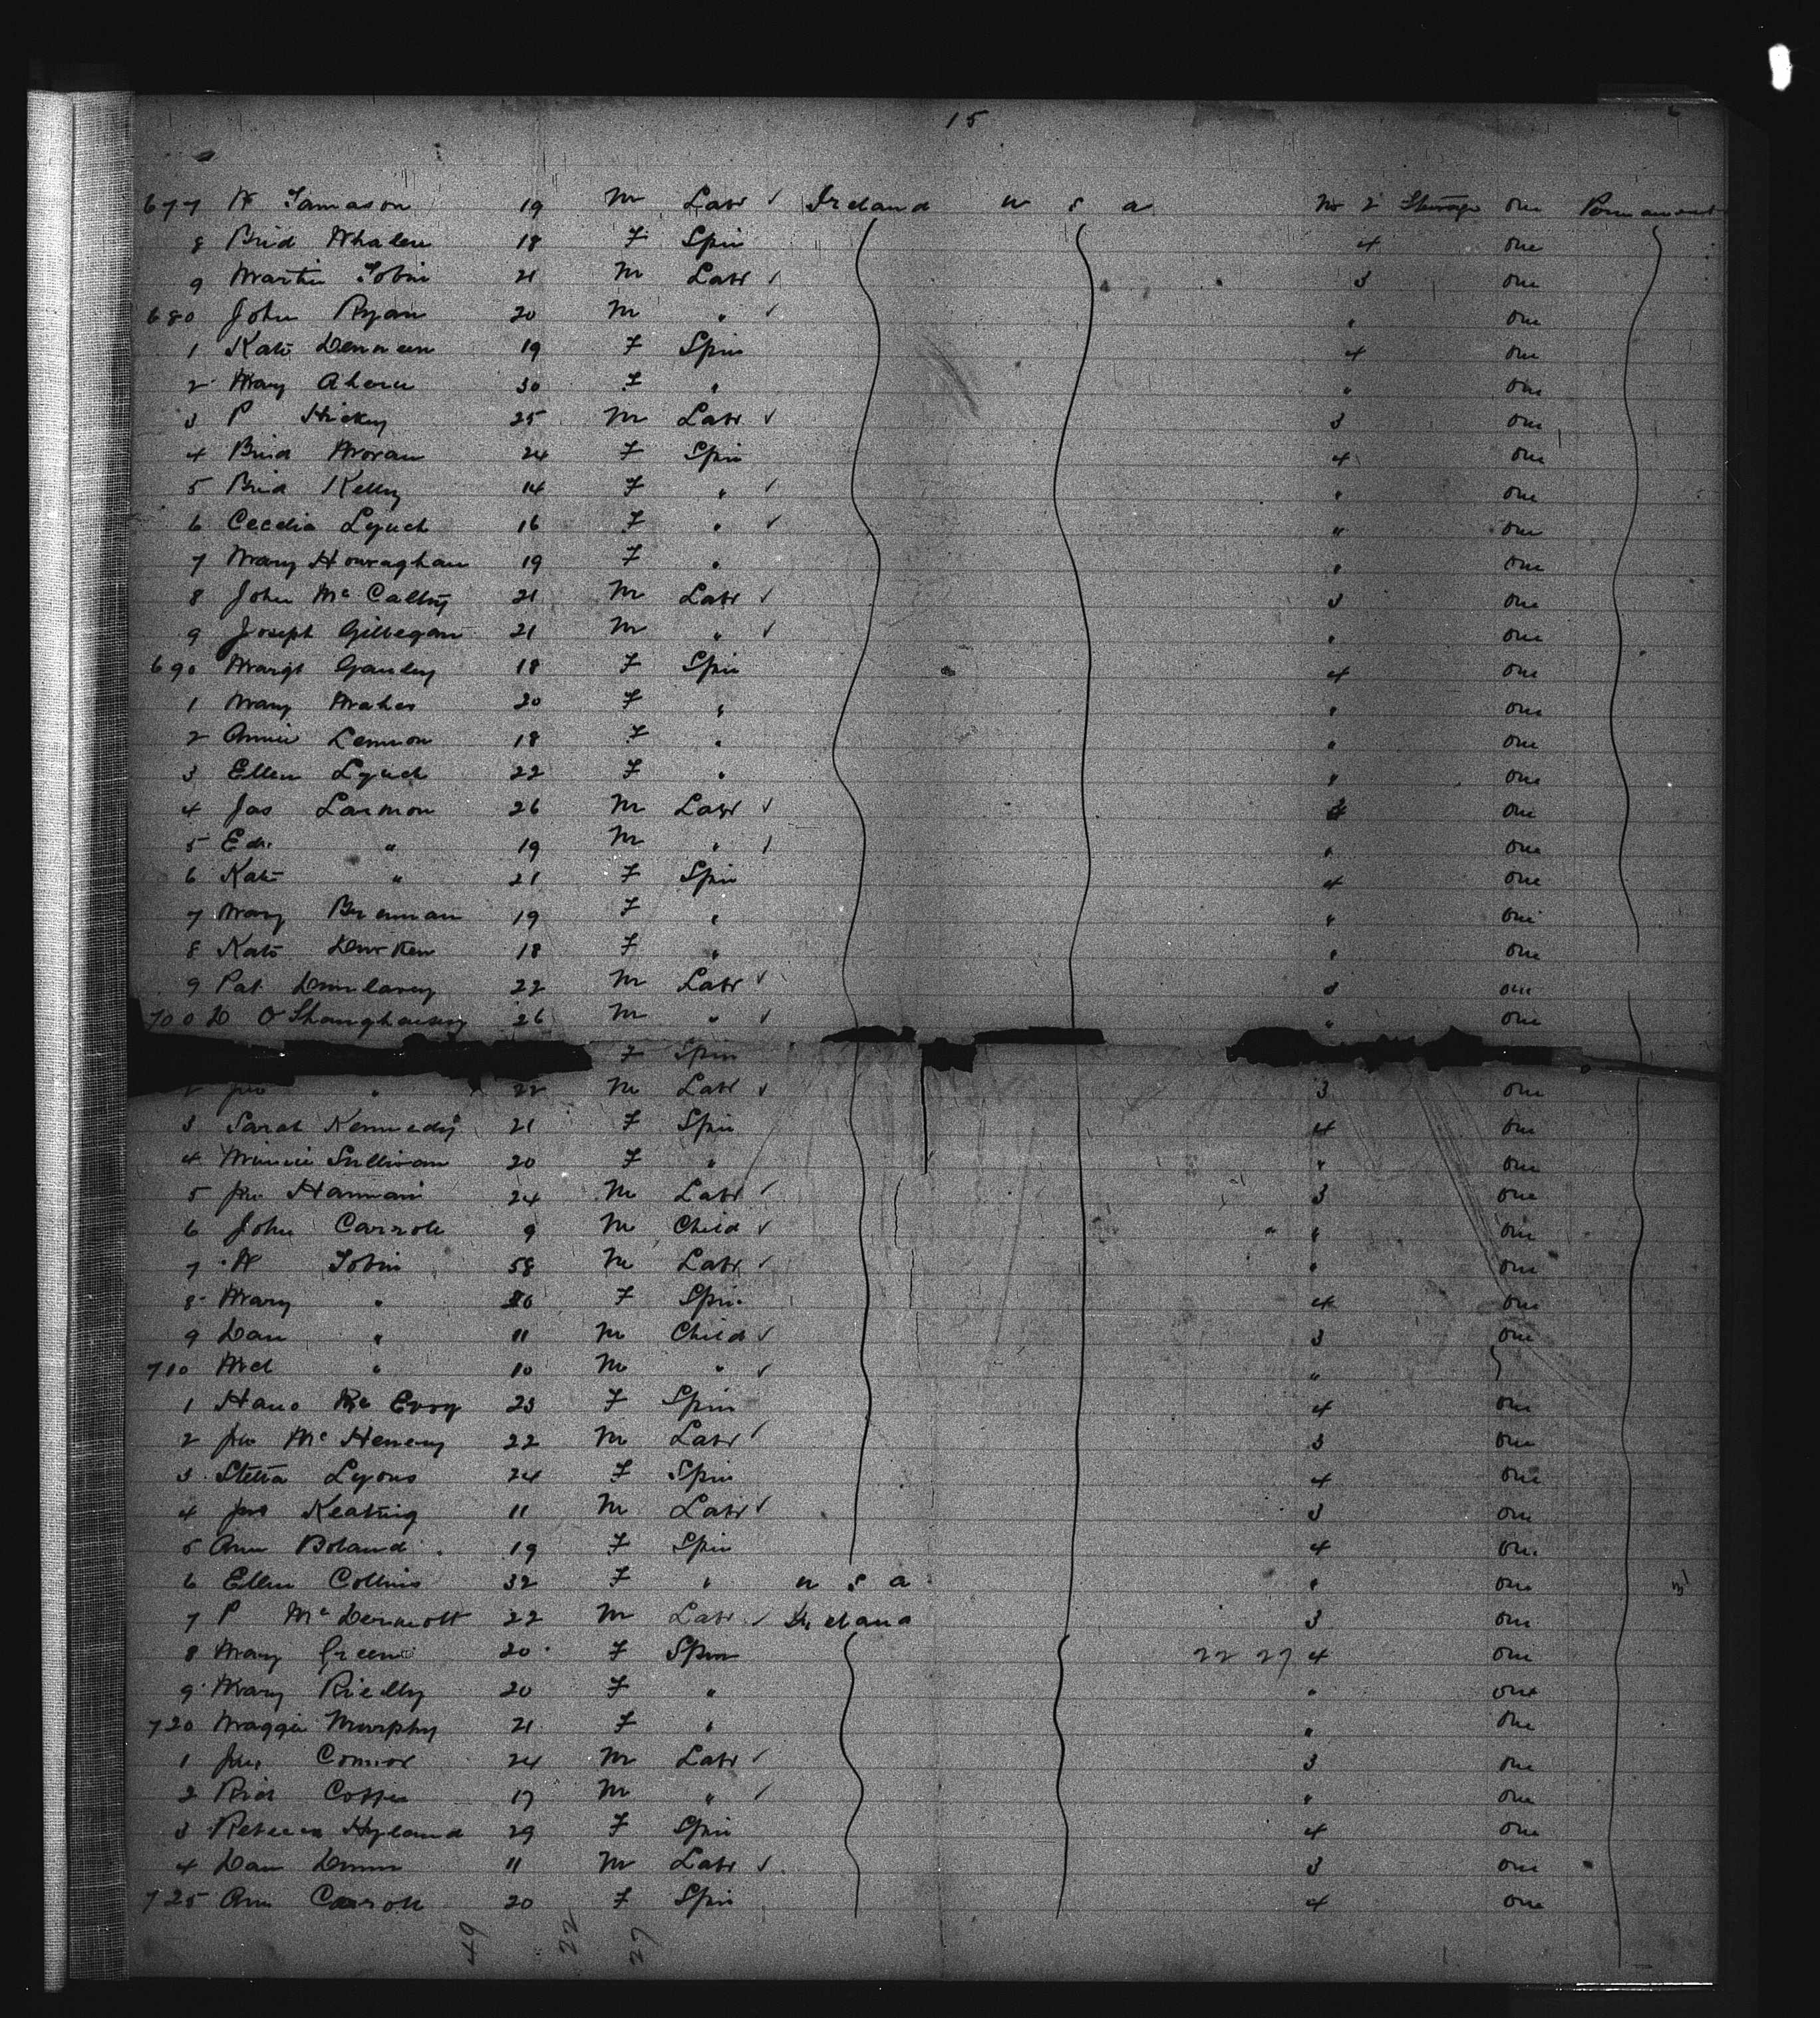 15
677 W 19 M Labr ✓ Ireland U S A No 2 Steerage one Permanent
8 Brid Whalen 18 F Spin 4 one
9 Martin Tobin 21 M Labr ✓ 3 one
680 John Ryan 20 M " ✓ " one
1 Kate Denneen 19 F Spin 4 one
2 Mary Ahern 30 F " " one
3 P Hickey 25 M Labr ✓ 3 one
4 Brid Moran 24 F Spin 4 one
5 Brid Kelly 14 F " ✓ " one
6 Cecelia Lynch 16 F " ✓ " one
7 Mary Howraghan 19 F " " one
8 John Mc 21 M Labr ✓ 3 one
9 Joseph Gillegan 21 M " ✓ " one
690 Margt Ganley 18 F Spin 4 one
1 Mary Maher 20 F " " one
2 Annie Lennon 18 F " " one
3 Ellen Lynch 22 F " " one
4 Jas Larmon 26 M Labr ✓ 3 one
5 Edw " 19 M " ✓ " one
6 Kate " 21 F Spin 4 one
7 Mary Brennan 19 F " " one
8 Kate Durken 18 F " " one
9 Pat Dunlavey 22 M Labr ✓ 3 one
700 D O'Shaughnessy 26 M " ✓ " one
F Spin
2 Jno " 22 M Labr ✓ 3 one
3 Sarah Kennedy 21 F Spin 4 one
4 Minnie Sullivan 20 F " " one
5 Jno Hannan 24 M Labr ✓ 3 one
6 John Carroll 9 M Child ✓ " " one
7 W Tobin 58 M Labr ✓ " one
8 Mary " F Spin 4 one
9 Dan " 11 M Child ✓ 3 one
710 Ml " 10 M " ✓ "
1 Hano Mc Evoy 23 F Spin 4 one
2 Jno Mc Henery 22 M Labr ✓ 3 one
3 Lyons 24 F Spin 4 one
4 Jno Keating 11 M Labr ✓ 3 one
5 Ann Boland 19 F Spin 4 one
6 Ellen Collins 32 F " U S A " one
7 P McDermott 22 M Labr ✓ Ireland 3 one
8 Mary Green 20 F Spin 22 27 4 one
9 Mary Rielly 20 F " " one
720 Maggie Murphy 21 F " " one
1 Jno Connor 24 M Labr ✓ 3 one
2 Rid 17 M " ✓ " one
3 Rebecca Hyland 29 F Spin 4 one
4 Dan Dunn 11 M Labr ✓ 3 one
725 Ann Carroll 20 F Spin 4 one
49 22 27